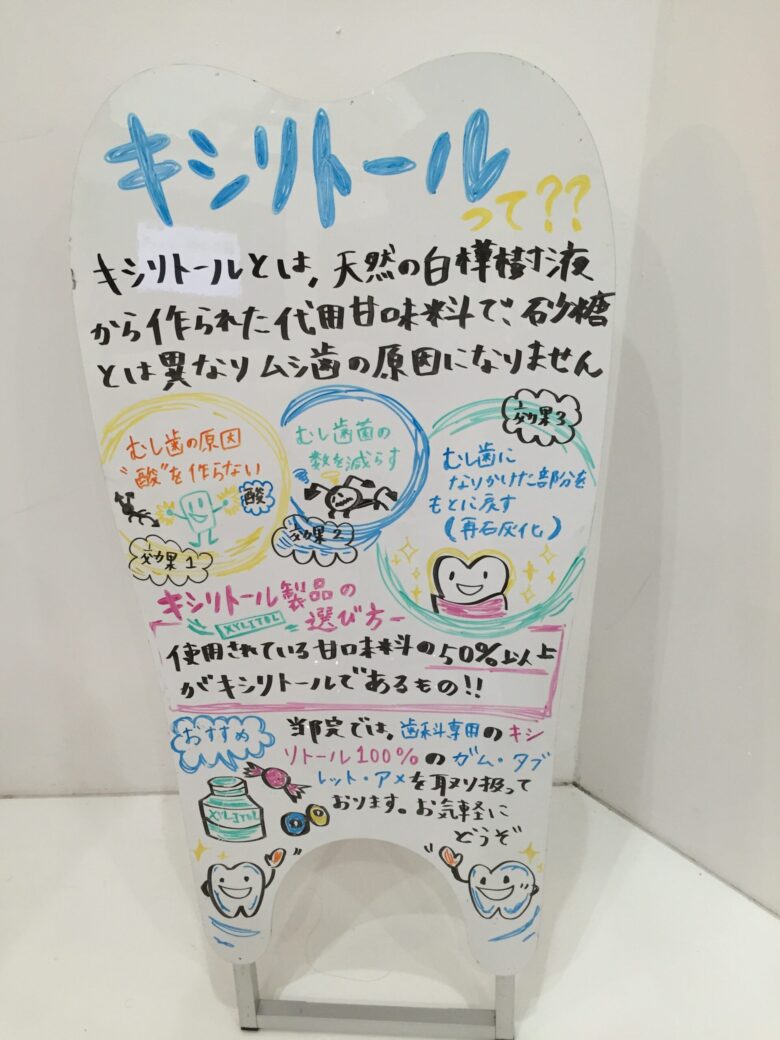 キシリトール
って??
キシリトールとは,天然の白樺樹液
から作られた代用甘味料で、砂糖
とは異なりムシ歯の原因になりません
むし歯の原因
"酸"を作らない
酸
効果1
むし歯菌の
数を減らす
効果2
効果3
むし歯に
なりかけた部分を
もとに戻す
(再石灰化)
キシリトール製品の
XYLITOL
選び方
使用されている甘味料の50%以上
がキシリトールであるもの!!
おすすめ
当院では,歯科専用のキシ
リトール100%のガム・タブ
レット・アメを取り扱って
おります。お気軽に
どうぞ
XYLITOL